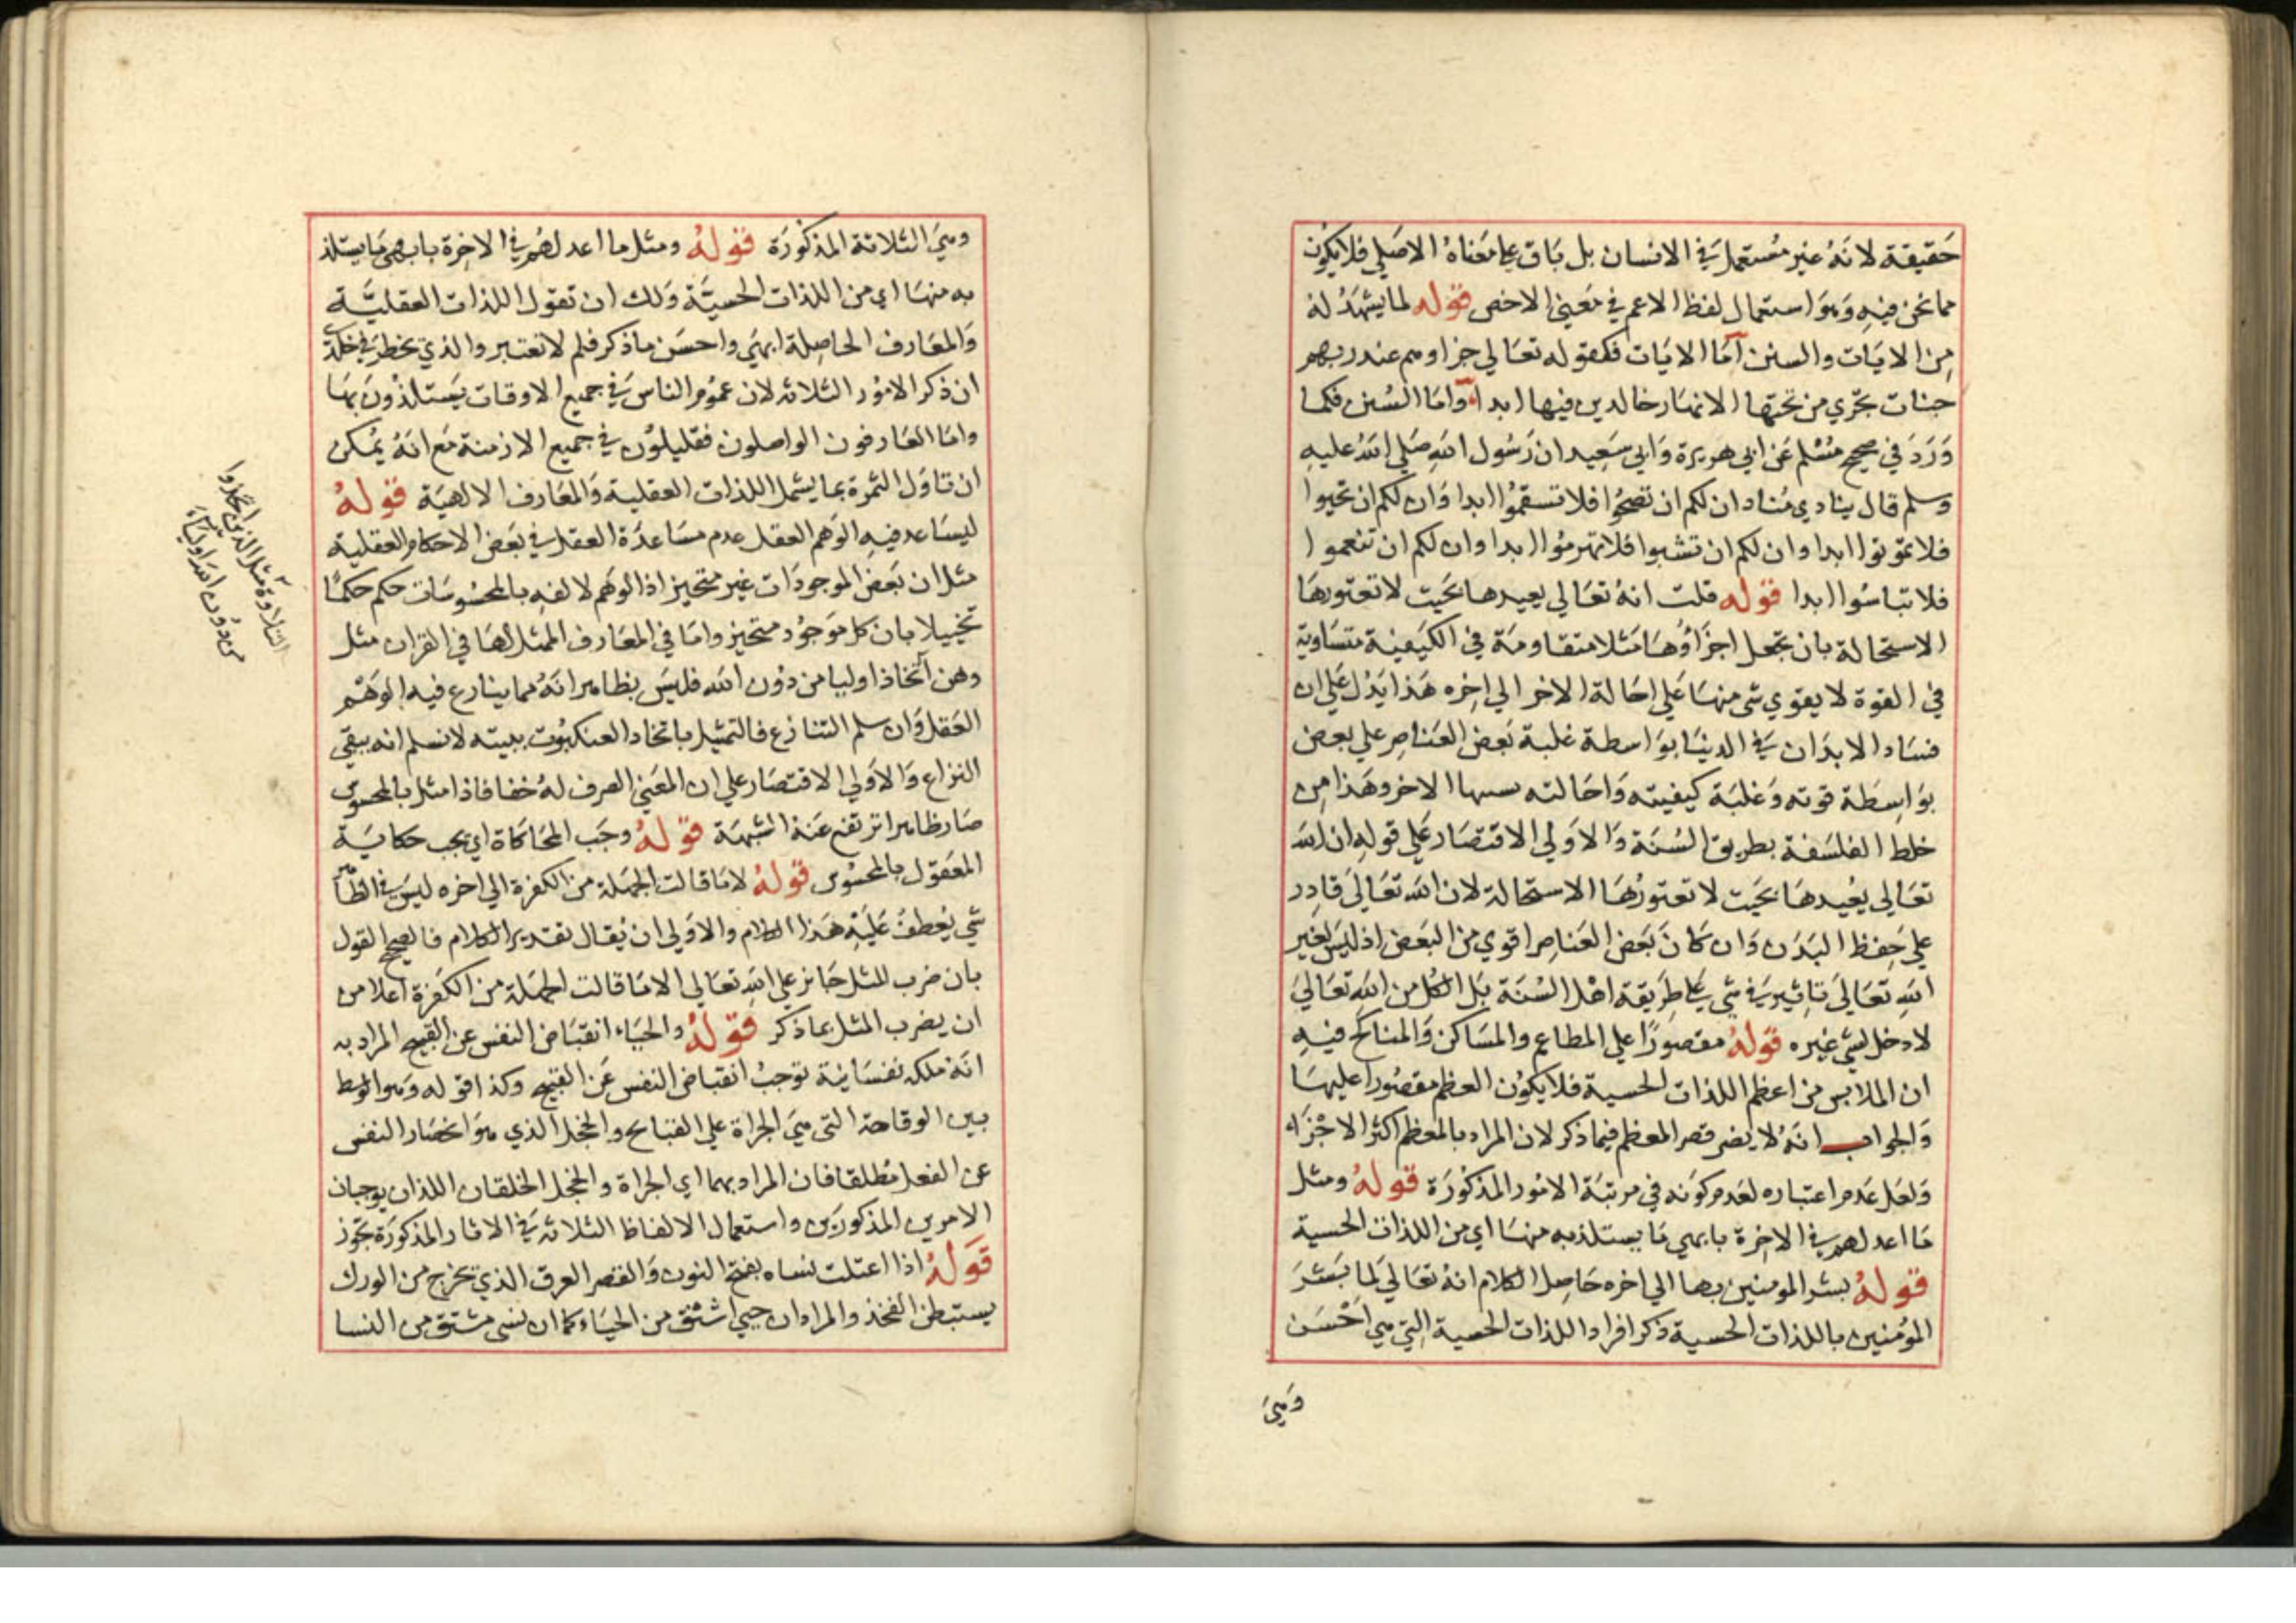 حقيقة لانه غير مستعمل في الانسان بل باق على معناه الاصلي فلا يكون
مما نحن فيه وهو استعمال لفظ الاعم في معنى الاخص قوله لما يشهد له
من الايات والسنن اما الايات فكقوله تعالى جزاوهم عند ربهم
جنات تجري من تحتها الانهار خالدين فيها ابدا واما السنن فكما
ورد في صحيح مسلم عن ابي هريرة وابي سعيد ان رسول الله صلى الله عليه
وسلم قال ينادي مناد ان لكم ان تصحوا فلا تسقموا ابدا وان لكم ان تحيوا
فلا تموتوا ابدا وان لكم ان تشبوا فلا تهرموا ابدا وان لكم ان تنعموا
فلا تباسوا ابدا قوله قلت انه تعالى يعيدها بحيث لا تعتورها
الاستحالة بان تجعل اجزاؤها مثلا متقاومة في الكيفية متساوية
في القوة لا يقوي شي منها على احالة الاخر الي اخره هذا يدل على ان
فساد الابدان في الدنيا بواسطة غلبة بعض العناصر علي بعض
بواسطة قوته وغلبة كيفيته واحالته الاخر وهذا من
خلط الفلسفة بطريق السنة والاولي الاقتصار على قوله ان الله
تعالى يعيدها بحيث لا تعتورها الاستحالة لان الله تعالى قادر
على حفظ البدن وان كان بعض العناصر اقوي من البعض اذ ليس لغير
الله تعالى تاثير في شي على طريقة اهل السنة بل الكل من الله تعالى
لا دخل لشي غيره قوله مقصورا على المطاعم والمساكن والمناكح فيه
ان الملابس من اعظم اللذات الحسية فلا يكون العظم مقصورا عليها
والجواب انه لا يضر قصر المعظم فيما ذكر لان المراد بالمعظم اكثر الاجزاء
ولعل عدم اعتباره لعدم كونه في مرتبة الامور المذكورة قوله ومثل
ما اعد لهم في الاخرة بابهي ما يستلذ به منها اي من اللذات الحسية
قوله بشر المومنين بها الي اخره حاصل الكلام انه تعالى لما بشر
المؤمنين باللذات الحسية ذكر افراد اللذات الحسية التي هي احسن
وهي
وهي الثلاثة المذكورة قوله ومثل ما اعد لهم في الاخرة بابهى ما يستلذ
به منها اي من اللذات الحسية ولك ان تقول اللذات العقلية
والمعارف الحاصلة ابهي واحسن ماذكر فلم لا تعتبر والذي يخطر في خلدي
ان ذكر الامور الثلاثه لان عموم الناس في جميع الاوقات يستلذون بها
واما العارفون الواصلون فقليلون في جميع الازمنة مع انه يمكن
ان تاول الثمرة بما يشمل اللذات العقلية والمعارف الالهية قوله
ليساعد فيه الوهم العقل عدم مساعدة العقل في بعض الاحكام العقلية
مثل ان بعض الموجودات غير متحيز اذ الوهم لالفه بالمحسوسات حكم حكما
تخييلا بان كل موجود متحيز واما في المعارف الممثل لها في القران مثل
وهن اتخاذ اوليا من دون الله فليس بظاهر انه مما ينازع فيه الوهم
العقل وان سلم التنازع فالتمثيل باتخاذ العنكبوت بيته لا نسلم انه يبقي
النزاع والاولي الاقتصار علي ان المعني الصرف له خفا فاذا مثل بالمحسوس
صار ظاهرا ترتفع عنه الشبهة قوله وجب المحاكاة اي يجب حكاية
المعقول بالمحسوس قوله لا ما قالت الجهلة من الكفرة الي اخره ليس في الظاهر
شي يعطف عليه هذا الكلام والاولي ان يقال تقدير الكلام فالصحيح القول
بان ضرب المثل جائز علي الله تعالى الا ما قالت الجهلة من الكفرة اعلا من
ان يضرب المثل بما ذكر قوله والحياء انقباض النفس عن القبيح المراد به
انه ملكه نفسانية توجب انقباض النفس عن القبيح وكذا قوله وهو الوسط
بين الوقاحة التي هي الجراة على القبائح والخجل الذي هو انحصار النفس
عن الفعل مطلقا فان المراد بهما اي الجراة والخجل الخلقان اللذان يوجبان
الامرين المذكورين واستعمال الالفاظ الثلاثه في الاثار المذكورة تجوز
قوله اذا اعتلت نساه بفتح النون والقصر العرق الذي يخرج من الورك
يستبطن الفخذ والمراد ان حيي اشتق من الحياء كما ان نسي مشتق من النسا
التلاوة مثل الذين اتخذوا
من دون الله اولياء